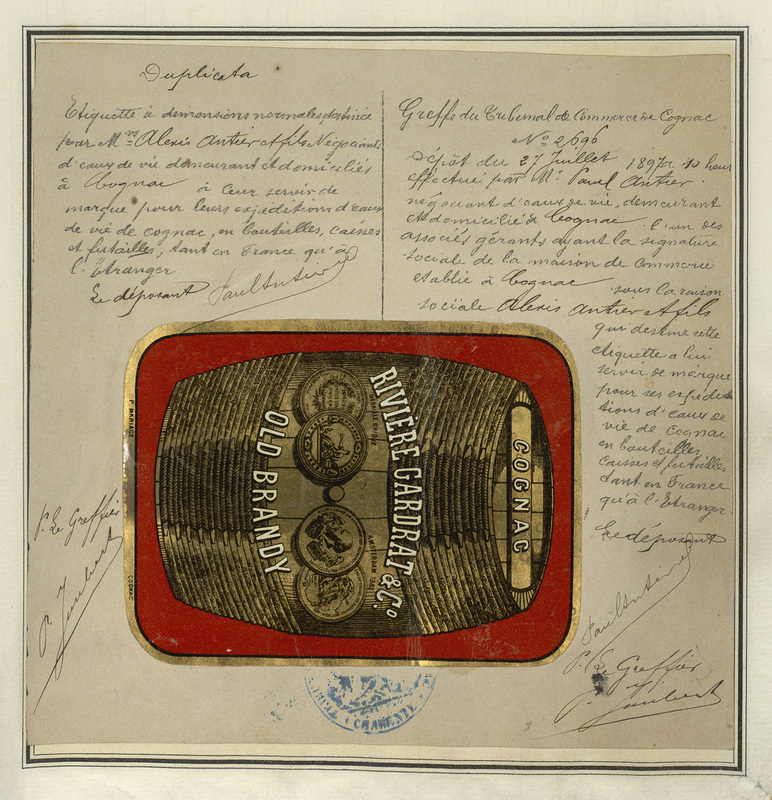 Duplicata
Etiquette à dimensions normales, destinée
par Mrs Alexis Antier et fils Négociants
d'eaux de vie demeurant et domiciliés
à Cognac à leur servir de
marque pour leurs expéditions d'eaux
de vie de cognac, en bouteilles, caisses
et futailles, tant en France qu'à
l'Etranger
Le déposant Paul Antier
Greffe du Tribunal de Commerce de Cognac
No 2696
Dépôt du 27 Juillet 1897 a 10 heur
effectué par Mr. Paul Antier.
négociant d'eaux de vie, demeurant
et domicilié à Cognac l'un des
associés gérants ayant la signature
sociale de la maison de Commerce
etablie à Cognac sous la raison
sociale Alexis Antier et fils
qui destine cette
etiquette a lui
servir de marque
pour ses expédi-
tions d'eaux de
vie de cognac
en bouteilles,
caisses et futailles
tant en France
qu'à l'Etranger.
Le déposant
Paul Antier
P. Le Greffier
P. Joubert
P. MARIAGE
COGNAC
OLD BRANDY
AMSTERDAM
RIVIERE GARDRAT & Co
COGNAC
P. Le Greffier
P. Joubert
CHARENTE